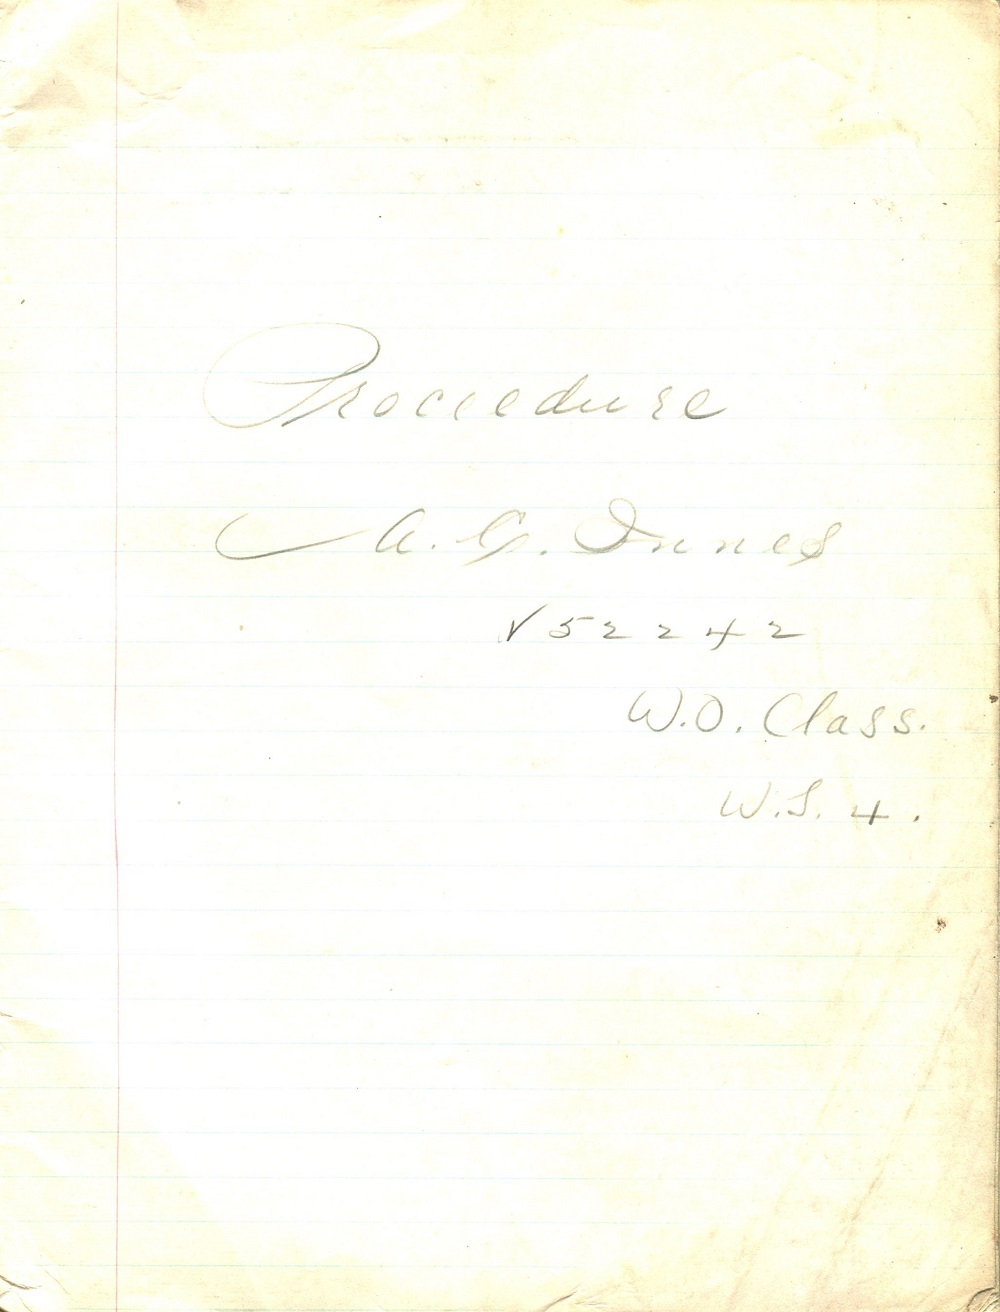 Proceedure
A. G. Innes
V52242
W.O. Class.
W.S. 4.